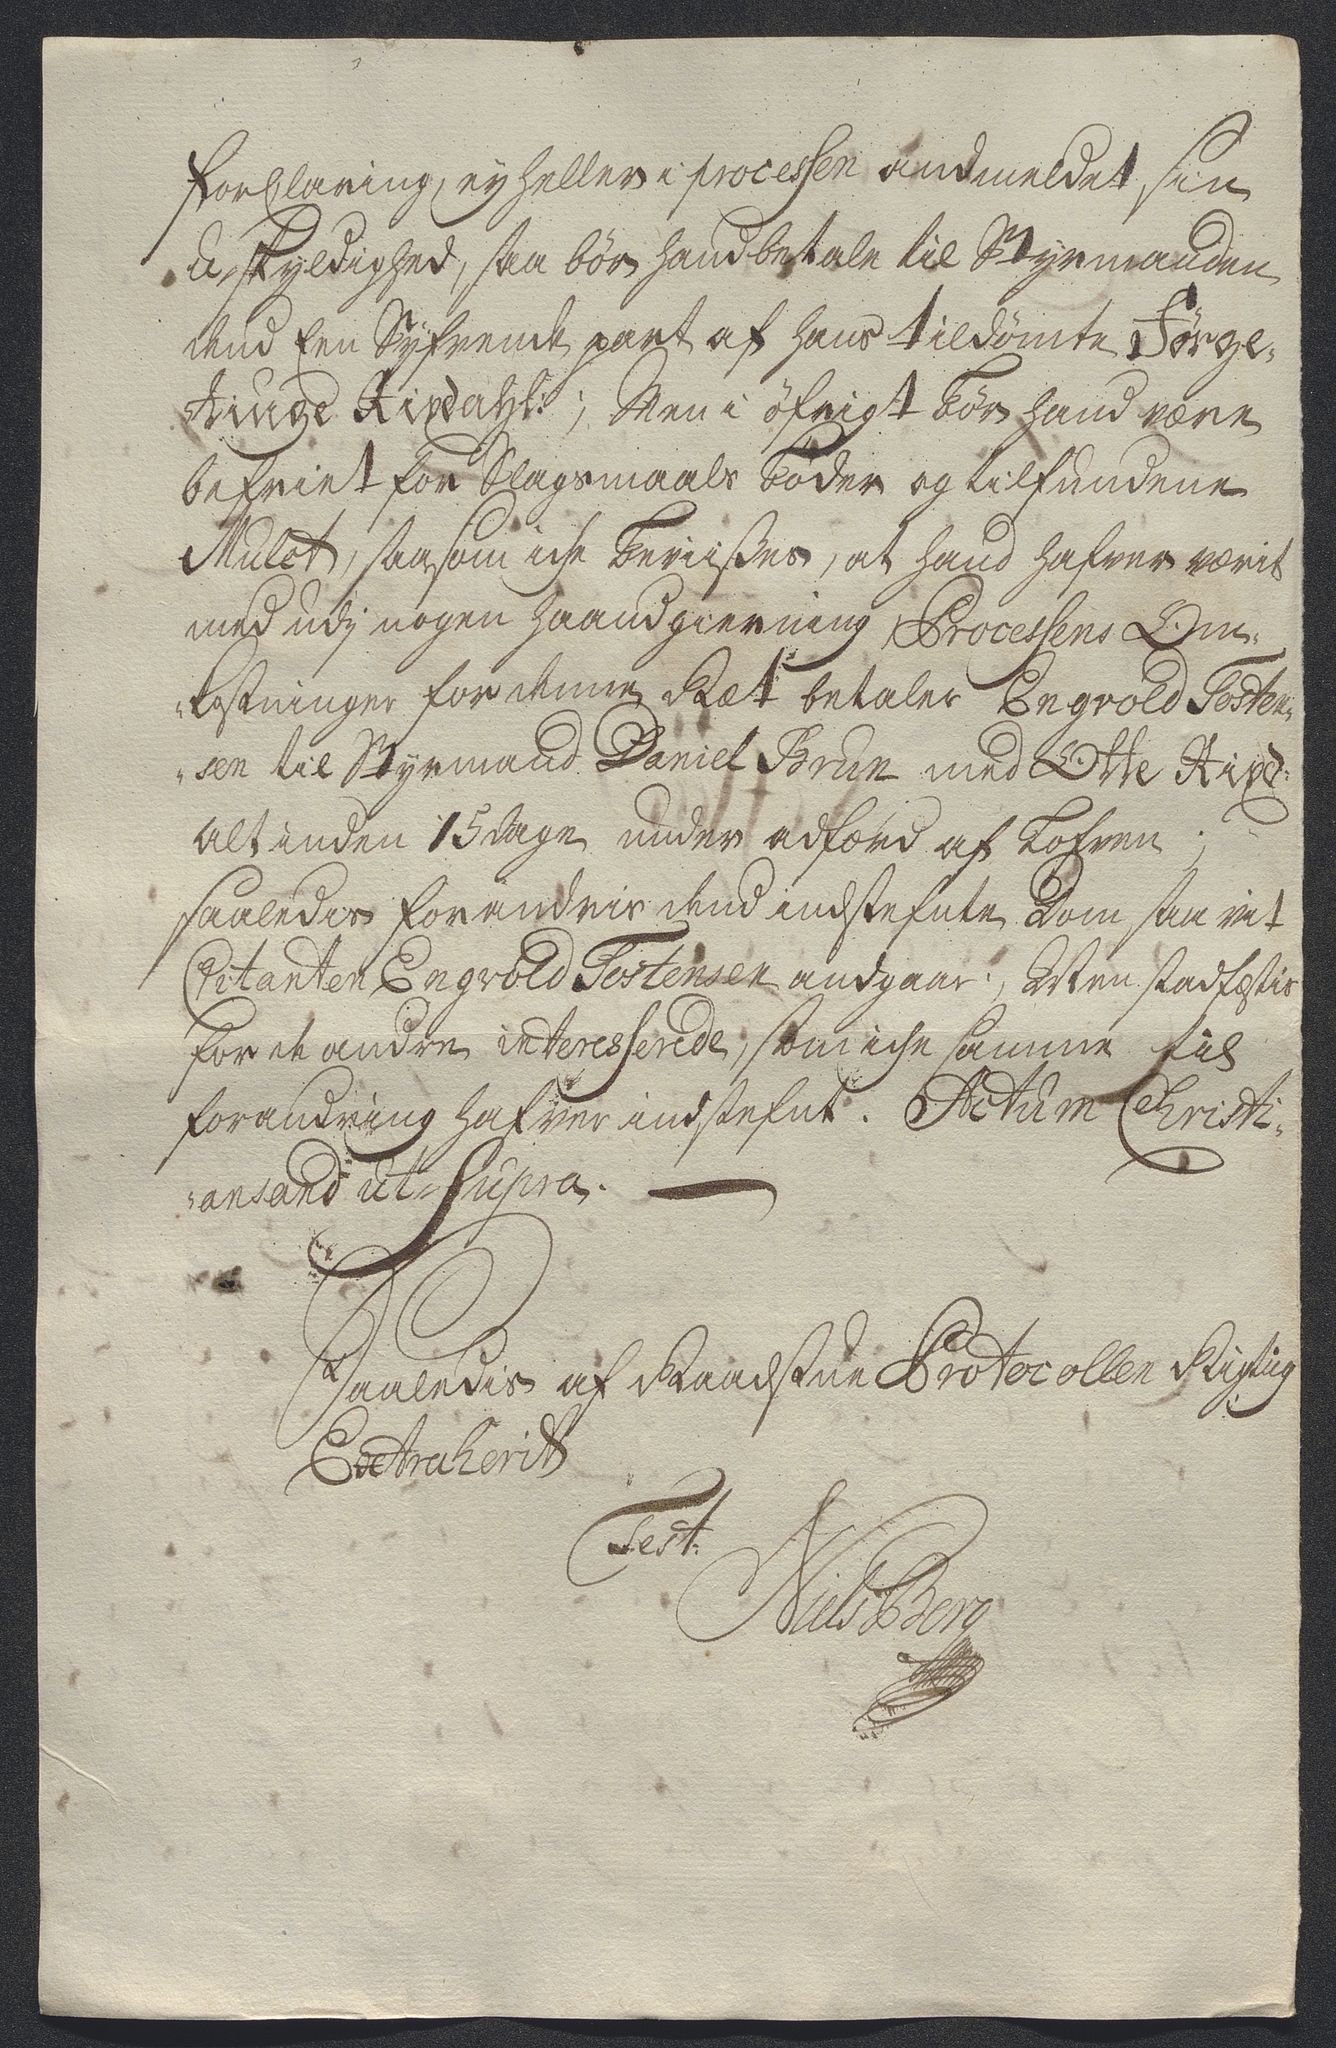 forklaring, ey heller i processen andmeldet sin
u-skyldighed, saa bør hand betale til Styrmanden
dend Een Syfvende part af hans tildømte Sörge-
-tiuge Rixdahl:; Men i öfrigt bör hand være
befriet for Slagsmaals böder og tilfundene
Mulct, saasom iche beviisses, at hand hafver værit
med udj nogen haandgierning Processens Om-
-kostninger for denne Ræt betaler Engvold Tosten-
-sen til Styrmand Daniel Brun med Otte Rixd:
alt inden 15 dage under adfærd af Lofven ;
saaledis forandris dend indstefnte Dom saa vit
Citanten Engvold Tostensen andgaar; Men stadfæstis
for de andre interesserede, som iche samme til
forandring hafver indstefnt. Actum Christi-
-ansand ut Supra.
Saaledis af Raadstue Protocollen Rigtig
Extraherit
Test:
Niels Berg